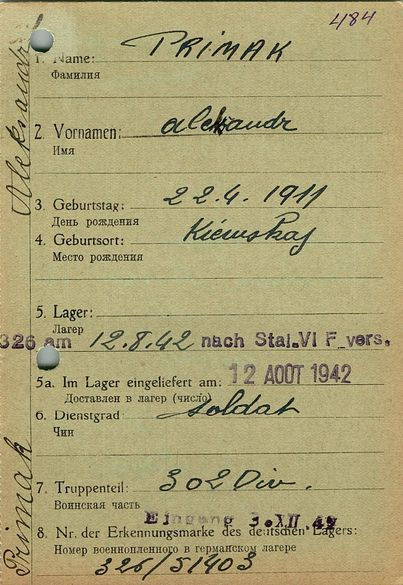 484
1. Name: PRIMAK
Фамилия
2. Vornamen: Aleksandr
Имя
3. Geburtstag: 22.4.1911
День рождения
4. Geburtsort: Kiewskaj
Место рождения
5. Lager:
Лагерь
326 am 12.8.42 nach Stal.VI F vers.
5a. Im Lager eingeliefert am: 12 AOÛT 1942
Доставлен в лагерь (число)
6. Dienstgrad: Soldat
Чин
7. Truppenteil: 302 Div.
Воинская часть
Eingang 3.XII.42
8. Nr. der Erkennungsmarke des deutschen Lagers:
Номер военнопленного в германском лагере
326/51403
Primak Aleksandr